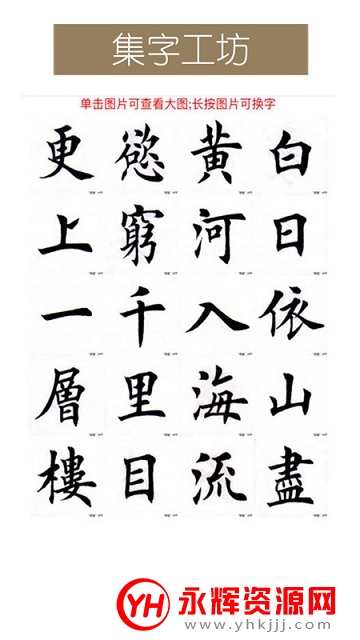 集字工坊
单击图片可查看大图;长按图片可换字
白日依山盡
黄河入海流
慾窮千里目
更上一層樓
YH 永辉资源网
www.yhkjjj.com